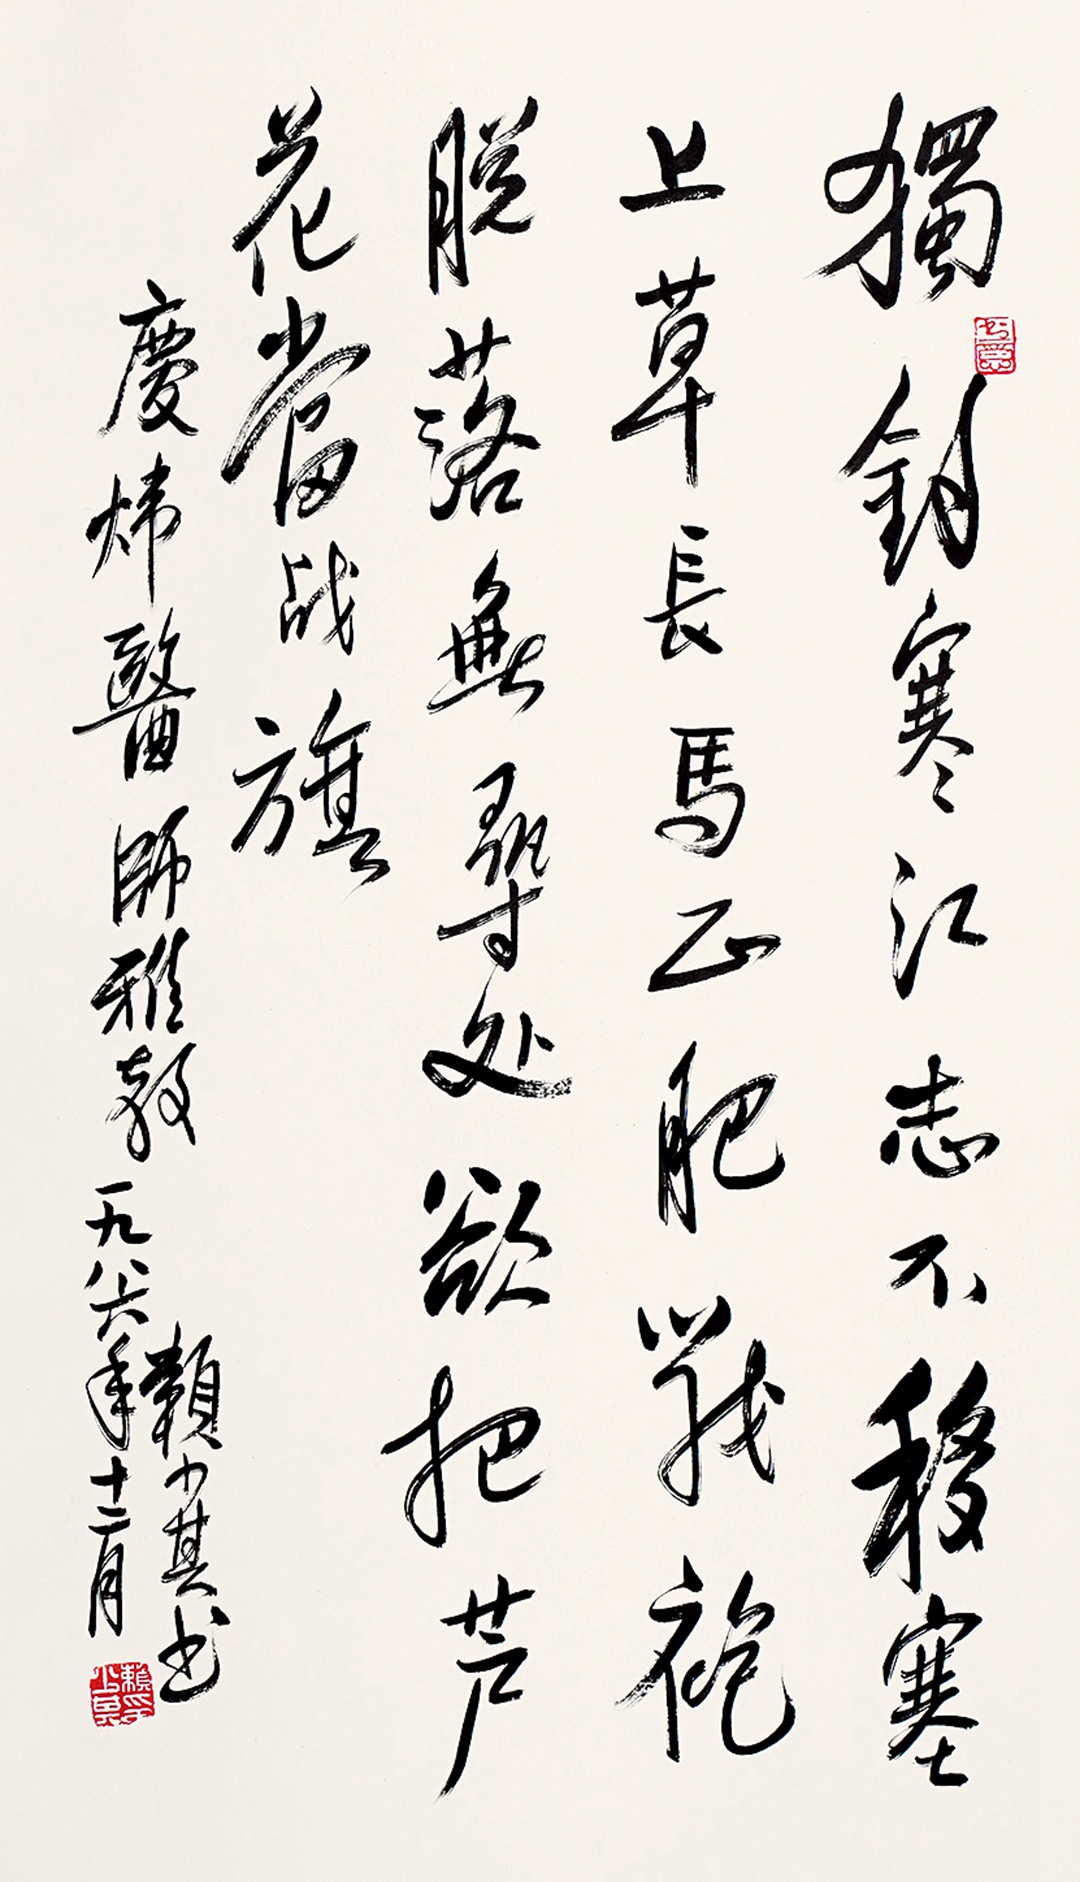 獨釣寒江志不移塞
上草長馬正肥戰袍
脫落無尋处欲把芦
花當战旗
慶煒醫師雅教
賴少其书
一九八六年十二月